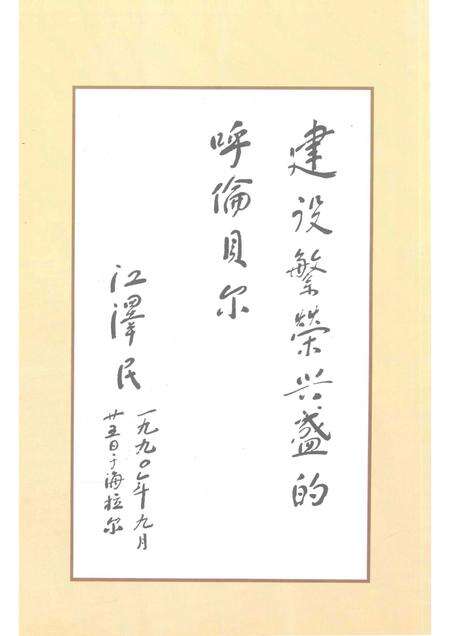 建设繁荣兴盛的
呼倫贝尔
江澤民
一九九〇年九月
廿五日于海拉尔